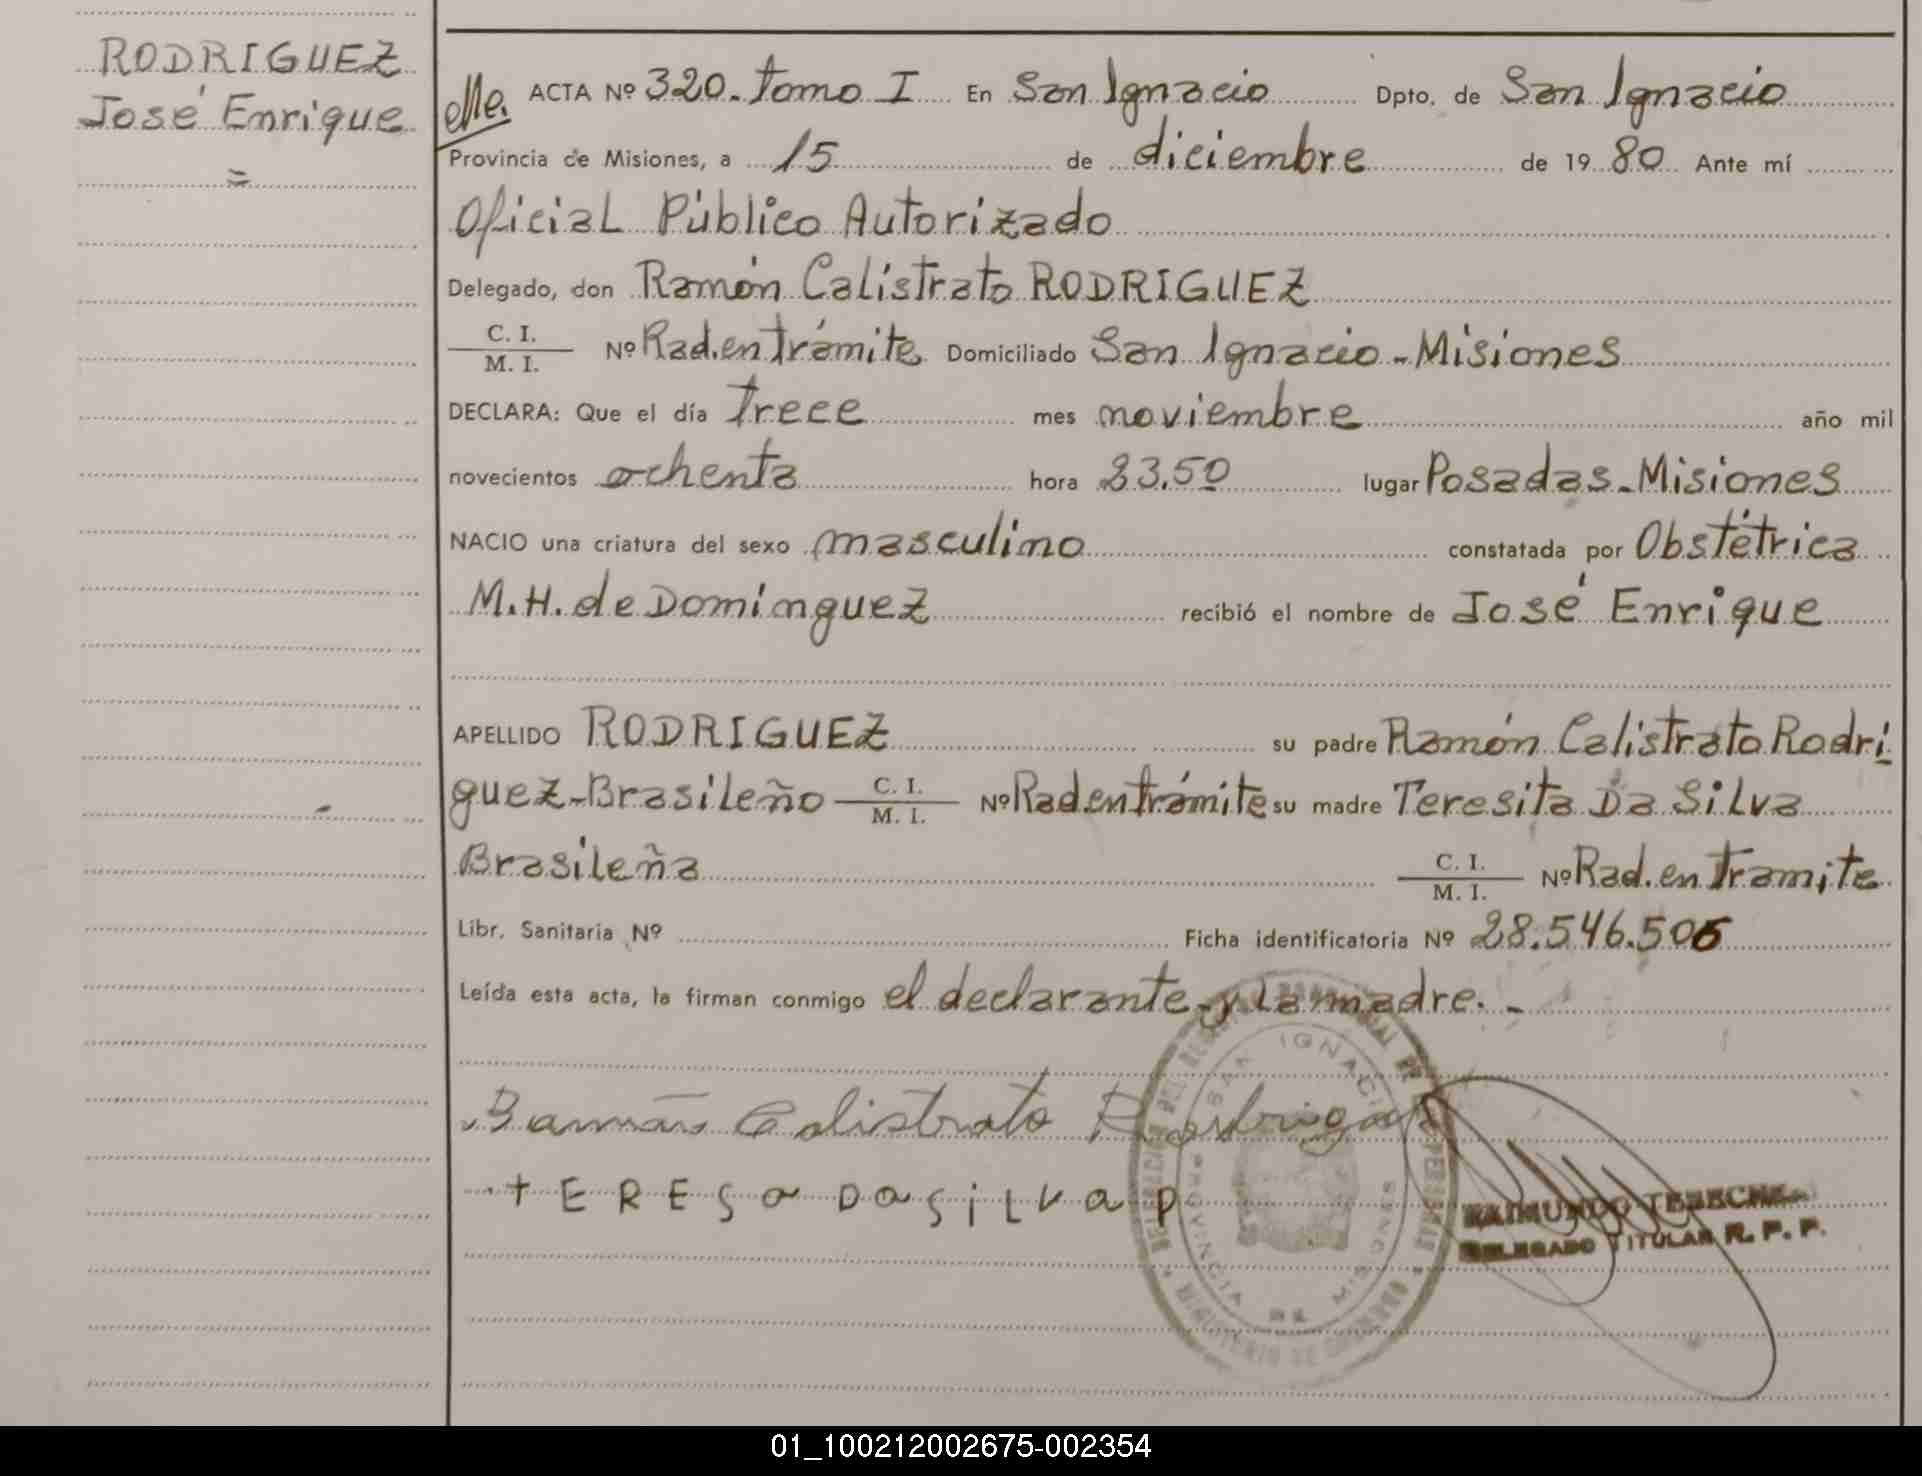 RODRIGUEZ
José Enrique
=
ACTA Nº 320. Tomo I En San Ignacio Dpto. de San Ignacio
Provincia de Misiones, a 15 de diciembre de 1980 Ante mí
Oficial Público Autorizado
Delegado, don Ramón Calistrato RODRIGUEZ
C. I.
M. I.
Nº Rad. en Trámite Domiciliado San Ignacio - Misiones
DECLARA: Que el día Trece mes noviembre año mil
novecientos ochenta hora 23.50 lugar Posadas - Misiones
NACIO una criatura del sexo masculino constatada por Obstétrica
M. H. de Dominguez recibió el nombre de José Enrique
APELLIDO RODRIGUEZ su padre Ramón Calistrato Rodri
guez - Brasileño C. I. / M. I. Nº Rad en trámite su madre Teresita Da Silva
Brasileña C. I. / M. I. Nº Rad. en Tramite
Libr. Sanitaria Nº Ficha identificatoria Nº 28.546.506
Leída esta acta, la firman conmigo el declarante y la madre. -
Ramón Calistrato Rodrigue
tERESa DaSiLva p
SAN IGNACIO
PROVINCIA DE MISIONES
MINISTERIO DE GOBIERNO
RAIMUNDO
DELEGADO TITULAR R. P. P.
01_100212002675-002354